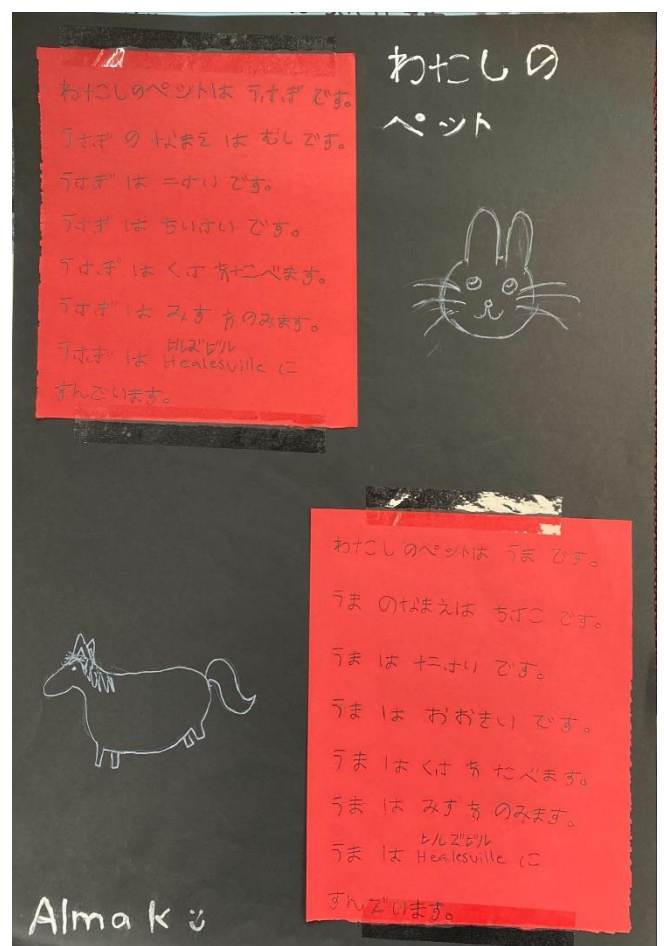 わたしの
ペット
わたしのペットは うさぎ です。
うさぎ の なまえ は むし です。
うさぎ は 二さい です。
うさぎ は ちいさい です。
うさぎ は くさ をたべます。
うさぎ は みす を のみます。
うさぎ は Healesville に
ヒルズビル
すんでいます。
わたしのペットは うま です。
うま のなまえは ちさこ です。
うま は 十二さい です。
うま は おおきい です。
うま は くさ を たべます。
うま は みす を のみます。
ヒルズビル
うま は Healesville に
すんでいます。
Alma K